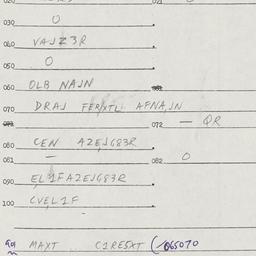 030 0
040 VAJZ3R
050 0
060 OLB NAJN
070 DRAJ AFNAJN
072 — QR
080 CEN AZEJG83R
081 — 082 0
090 EL1FAZEJG83R
100 CVEL1F
MAXT C1RESXT (-065070